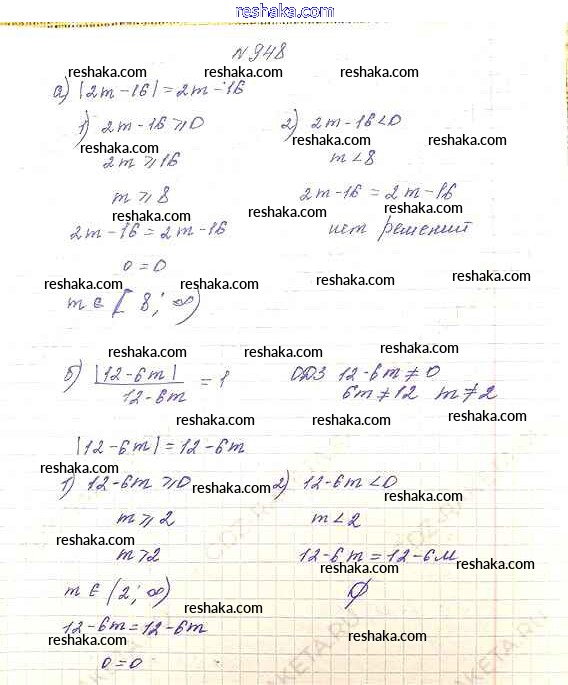 reshaka.com
N 948
reshaka.com reshaka.com reshaka.com
а) |2m-16| = 2m-16
1) 2m-16 ⩾ 0 2) 2m-16 < 0
reshaka.com reshaka.com
2m ⩾ 16 m < 8
m ⩾ 8 2m-16 = 2m-16
reshaka.com reshaka.com reshaka.com
2m-16 = 2m-16 нет решений
0 = 0
reshaka.com reshaka.com reshaka.com
m ∈ [8; ∞)
reshaka.com reshaka.com reshaka.com
б) |12-6m| / 12-6m = 1 ОДЗ 12-6m ≠ 0
6m ≠ 12 m ≠ 2
reshaka.com reshaka.com reshaka.com
|12-6m| = 12-6m
reshaka.com
1) 12-6m ⩾ 0 2) 12-6m < 0
reshaka.com reshaka.com
m ⩾ 2 m < 2
reshaka.com
m > 2 12-6m = 12-6м
reshaka.com reshaka.com
m ∈ (2; ∞) ∅
reshaka.com reshaka.com
12-6m = 12-6m
reshaka.com reshaka.com
0 = 0